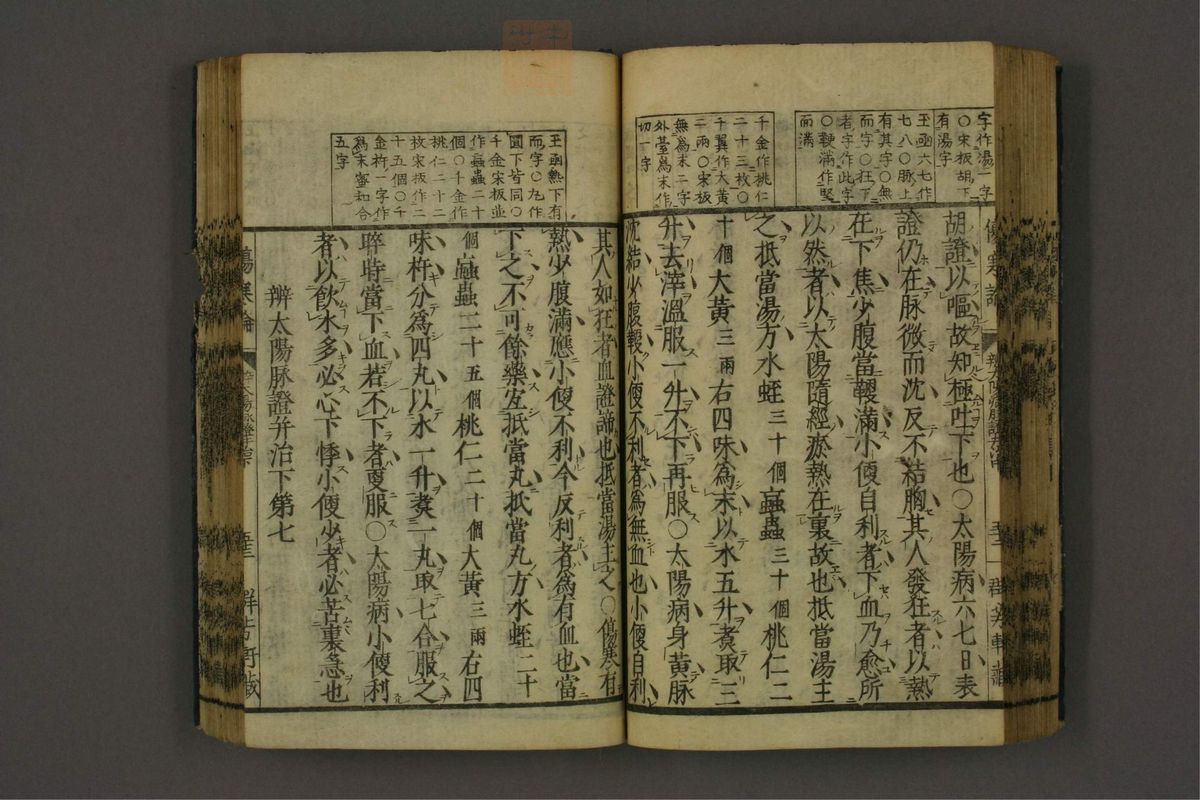 字作湯一字
〇宋板胡下
有湯字
玉函六七作
七八〇脉上
有其字〇無
而字〇狂下
者字作此字
〇鞕滿作堅
而滿
千金作桃仁
二十三枚〇
千翼作大黃
二兩〇宋板
無爲末二字
外臺爲末作
切一字
胡證以嘔故知極吐下也〇太陽病六七日表
證仍在脉微而沈反不結胸其人發狂者以熱
在下焦少腹當鞕滿小便自利者下血乃愈所
以然者以太陽隨經瘀熱在裏故也抵當湯主
之抵當湯方水蛭三十個蝱蟲三十個桃仁二
十個大黃三兩右四味爲末以水五升煑取三
升去滓溫服一升不下再服〇太陽病身黃脉
沈結少腹鞕小便不利者爲無血也小便自利
玉函熱下有
而字〇丸作
圓下皆同〇
千金宋板並
作蝱蟲二十
個〇千金作
桃仁二十二
枚宋板作二
十五個〇千
金杵一字作
爲末蜜和合
五字
其人如狂者血證諦也抵當湯主之〇傷寒有
熱少腹滿應小便不利今反利者爲有血也當
下之不可餘藥宜抵當丸抵當丸方水蛭二十
個蝱蟲二十五個桃仁二十個大黃三兩右四
味杵分爲四丸以水一升煑一丸取七合服之
晬時當下血若不下者更服〇太陽病小便利
者以飮水多必心下悸小便少者必苦裏急也
辨太陽脉證幷治下第七
傷寒論